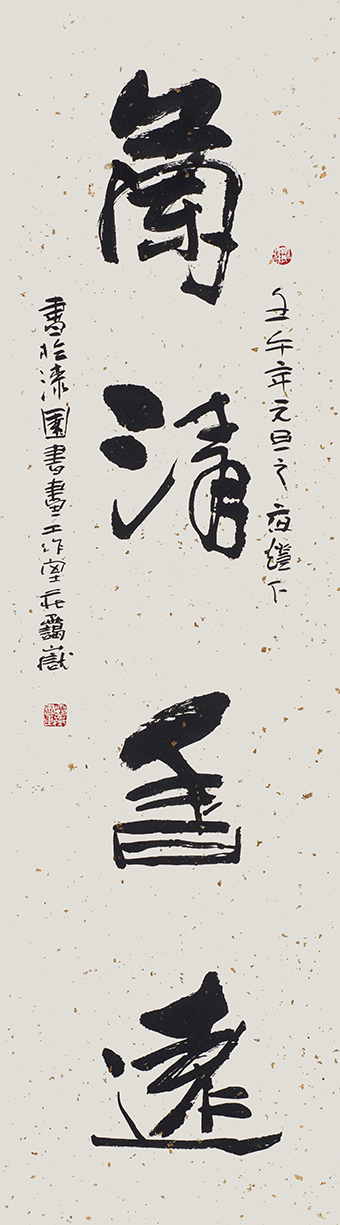 壬午年元旦之夜燈下
蘭清香遠
書於漆園書畫工作室莊